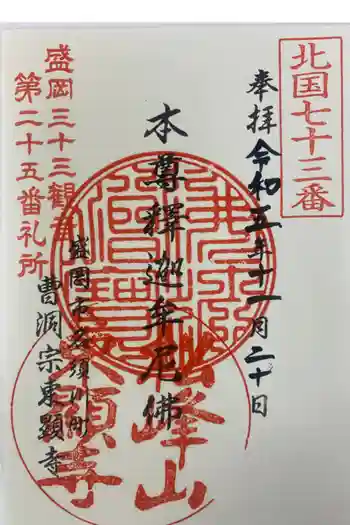 北国七十三番
奉拝 令和五年十一月二十日
本尊釋迦牟尼佛
盛岡三十三観音
第二十五番礼所
盛岡市名須川町
曹洞宗東顕寺
松峰山
東顕寺